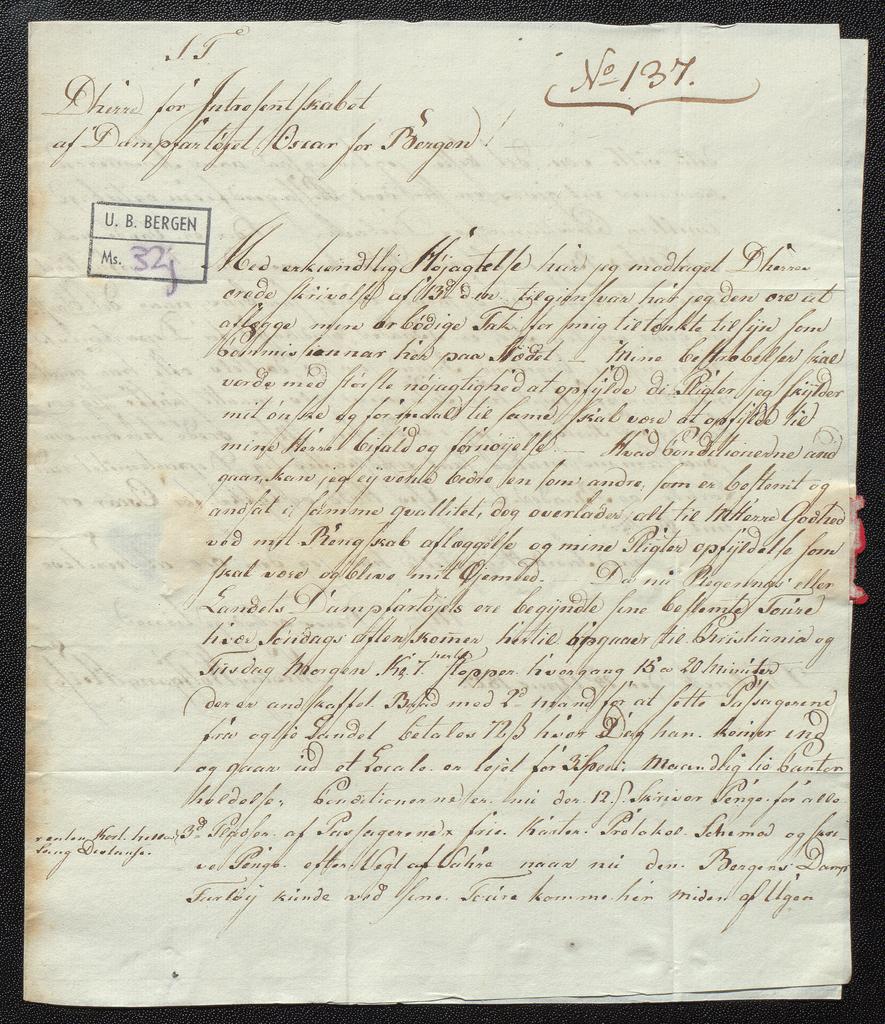 S T
No 137.
Dherrer for Intresentskabet
af Dampfartøjet Oscar for Bergen!
U. B. BERGEN
Ms. 32j
Med erkiendtlig Højagtelse har jeg modtaget Dherrer
ærede skrivelse af 13d d.m. tilgiensvar har jeg den ære at
aflegge min ærbödige Tak for mig tiltænkte tilsÿn som
Commissionnær her paa Stædet — Mine bestræbelser skal
verde med störste nöjagtighed at opfÿlde di Pligter jeg skÿlder
mit önske og formaal til samme skal være at opfÿlde til
mine Herrer bifald og fornöÿelse — Hvad Conditionerne and
gaar, kan jeg eÿ vente bedre en som andre, som er bestemt og
andsat i samme qvallitet, dog overlader alt til MHerrer Godhed
ved mit Rengskab aflæggelse og mine Pligter opfÿldelse som
skal være og blive mit Øjemed — Da nu Regeringens eller
Landets Dampfartöjer ere begÿndte sine bestemte Toure
hver Söndags Aften kommer hertil opgaaer til Christiania og
Tirsdag Morgen Kl. 7. stopper hvergang 15 a 20 Minuter
der er andskaffet Baad med 2d Mand for at sette Passagerene
fra og til Landet betales 72 β hver Dag han komer ind
og gaar ud et Locale er lejet for 3 Speci. Maandlig til Contor
holdelse, Conditionerne er nu der 12 β Skriver Penge for alle
enten Kort heller
lang Distanse.
3d Pladser af Passagerene frie Karter Protokol Schema og
ve Penge efter Vegt af Sahre naar nu den Bergens Damp
Fartöÿ kunde ved sine Toure komme her miden af Ugen